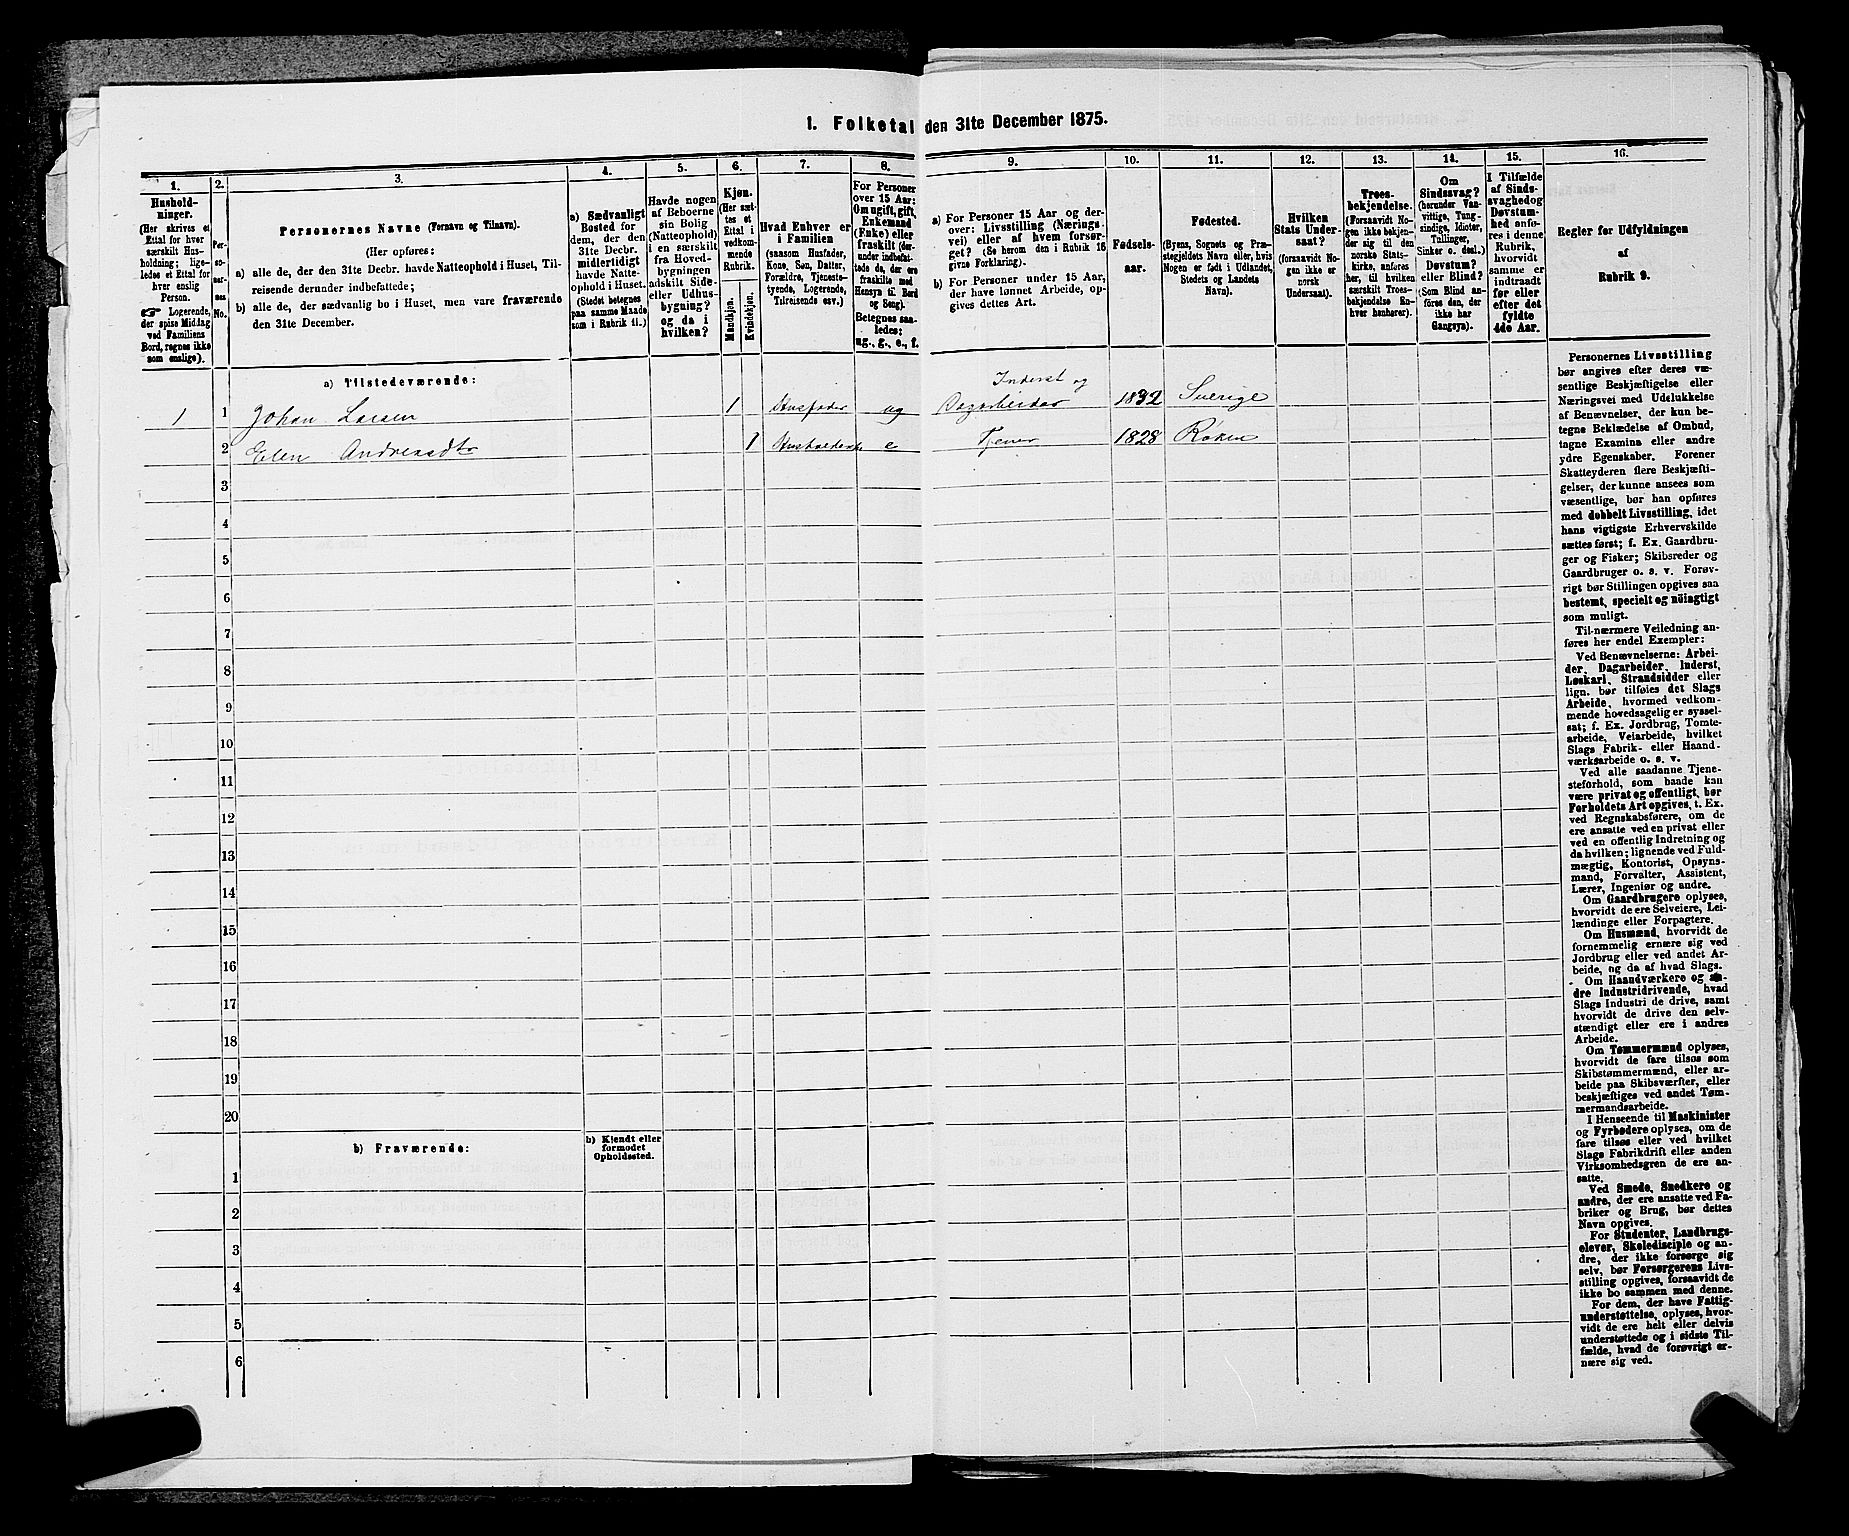 1. Folketal den 31te December 1875.
1.
Hushold-
ninger.
(Her skrives et
Ettal for hver
særskilt Hus-
holdning; lige-
ledes et Ettal for
hver enslig
Person.
Logerende,
der spise Middag
ved Familiens
Bord, regnes ikke
som enslige).
2.
No.
3.
Personernes Navne (Fornavn og Tilnavn).
(Her opføres:
a) alle de, der den 31te Decbr. havde Natteophold i Huset, Til-
reisende derunder indbefattede;
b) alle de, der sædvanlig bo i Huset, men vare fraværende
den 31te December.
4.
a) Sædvanligt
Bosted for
dem, der den
31te Decbr.
midlertidigt
havde Natte-
ophold i Huset.
(Stedet betegnes
paa samme Maade
som i Rubrik 11.)
5.
Havde nogen
af Beboerne
sin Bolig
(Natteophold)
i en særskilt
fra Hoved-
bygningen
adskilt Side-
eller Udhus-
bygning?
og da i
hvilken?
6.
Kjøn.
(Her sæt-
tes et
Ettal i
vedkom-
mende
Rubrik.
Mandkjøn.
Kvindekjøn.
7.
Hvad Enhver er
i Familien
(saasom Husfader,
Kone, Søn, Datter,
Forældre, Tjeneste-
tyende, Logerende,
Tilreisende osv.)
8.
For Personer
over 15 Aar:
Om ugift, gift,
Enkemand
(Enke) eller
fraskilt (der-
under indbefat-
tede de, der ere
fraskilte med
Hensyn til Bord
og Seng).
Betegnes saa-
ledes:
ug., g., e., f.
9.
a) For Personer 15 Aar og der-
over: Livsstilling (Nærings-
vei) eller af hvem forsør-
get? (Se herom den i Rubrik 16
givne Forklaring).
b) For Personer under 15 Aar,
der have lønnet Arbeide, op-
gives dettes Art.
10.
Fødsels-
aar.
11.
Fødested.
(Byens, Sognets og Præ-
stegjeldets Navn eller, hvis
Nogen er født i Udlandet,
Stedets og Landets
Navn).
12.
Hvilken
Stats Under-
saat?
(forsaavidt No-
gen ikke er
norsk
Undersaat).
13.
Troes-
bekjendelse.
(Forsaavidt No-
gen ikke bekjen-
der sig til den
norske Stats-
kirke, anføres
her, til hvilken
særskilt Troes-
bekjendelse En-
hver henhører).
14.
Om
Sindssvag?
(herunder Van-
vittige, Tung-
sindige, Idioter,
Tullinger,
Sinker o. desl.)
Døvstum?
eller Blind?
(Som Blind an-
føres den, der
ikke har
Gangsyn).
15.
I Tilfælde
af Sinds-
svaghed og
Døvstum-
hed anfø-
res i denne
Rubrik,
hvorvidt
samme er
indtraadt
før eller
efter det
fyldte
4de Aar.
16.
Regler før Udfyldningen
af
Rubrik 9.
a) Tilstedeværende:
1 1 Johan Larsen 1 Husfader ug Inderst og Dagarbeider 1832 Sverige
2 Elen Andreasdtr 1 e Tjener 1828 Røken
3
4
5
6
7
8
9
10
11
12
13
14
15
16
17
18
19
20
b) Fraværende:
b) Kjendt eller
formodet
Opholdssted.
1
2
3
4
5
6
Personernes Livsstilling
bør angives efter deres væ-
sentlige Beskjæftigelse eller
Næringsvei med Udelukkelse
af Benævnelser, der kun be-
tegne Beklædelse af Ombud,
tagne Examina eller andre
ydre Egenskaber. Forener
Skatteyderen flere Beskjæfti-
gelser, der kunne ansees som
væsentlige, bør han opføres
med dobbelt Livsstilling, idet
hans vigtigste Erhvervskilde
sættes først; f. Ex. Gaardbru-
ger og Fisker; Skibsreder og
Gaardbruger o. s. v. Forøv-
rigt bør Stillingen opgives saa
bestemt, specielt og nöiagtigt
som muligt.
Til nærmere Veiledning an-
føres her endel Exempler:
Ved Benævnelserne: Arbei-
der, Dagarbeider, Inderst,
Løskarl, Strandsidder eller
lign. bør tilføies det Slags
Arbeide, hvormed vedkom-
mende hovedsagelig er syssel-
sat; f. Ex. Jordbrug, Tomte-
arbeide, Veiarbeide, hvilket
Slags Fabrik- eller Haand-
værksarbeide o. s. v.
Ved alle saadanne Tjene-
steforhold, som baade kan
være privat og offentligt, bør
Forholdets Art opgives, t. Ex.
ved Regnskabsførere, om de
ere ansatte ved en privat eller
ved en offentlig Indretning og
da hvilken; lignende ved Fuld-
mægtig, Kontorist, Opsyns-
mand, Forvalter, Assistent,
Lærer, Ingeniør og andre.
Om Gaardbrugere oplyses,
hvorvidt de ere Selveiere, Lei-
lændinge eller Forpagtere.
Om Husmænd, hvorvidt de
fornemmelig ernære sig ved
Jordbrug eller ved andet Ar-
beide, og da af hvad Slags.
Om Haandværkere og an-
dre Industridrivende, hvad
Slags Industri de drive, samt
hvorvidt de drive den selv-
stændigt eller ere i andres
Arbeide.
Om Tømmermænd oplyses,
hvorvidt de fare tilsøs som
Skibstømmermænd, eller ar-
beide paa Skibsværfter, eller
beskjæftiges ved andet Tøm-
mermandsarbeide.
I Henseende til Maskinister
og Fyrbødere oplyses, om de
fare tilsøs eller ved hvilket
Slags Fabrikdrift eller anden
Virksomhedsgren de ere an-
satte.
Ved Smede, Snedkere og
andre, der ere ansatte ved Fa-
briker og Brug, bør dettes
Navn opgives.
For Studenter, Landbrugs-
elever, Skoledisciple og an-
dre, der ikke forsørge sig
selv, bør Forsørgerens Livs-
stilling opgives, forsaavidt de
ikke bo sammen med denne.
For dem, der have Fattig-
understøttelse, oplyses, hvor-
vidt de ere helt eller delvis
understøttede og i sidste Til-
fælde, hvad de forøvrigt er-
nære sig ved.